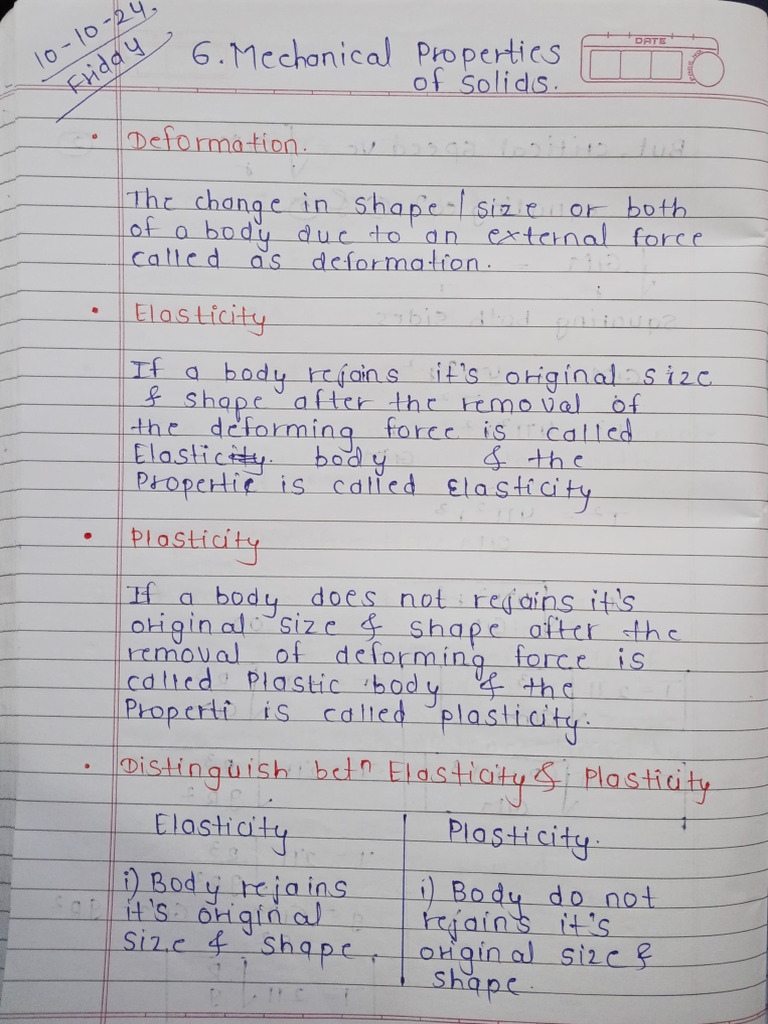 10-10-24.
Friday
6. Mechanical Properties
of Solids.
DATE
PAGE NO.
• Deformation.
The change in shape / size or both
of a body due to an external force
called as deformation.
• Elasticity
If a body rejains it's original size
& shape after the removal of
the deforming force is called
Elasticity. body & the
Propertie is called Elasticity
• Plasticity
If a body does not rejains it's
original size & shape after the
removal of deforming force is
called Plastic body & the
Properti is called plasticity.
• Distinguish betn Elasticity & Plasticity
Elasticity
i) Body rejains
it's original
size & shape.
Plasticity.
i) Body do not
rejains it's
original size &
shape.